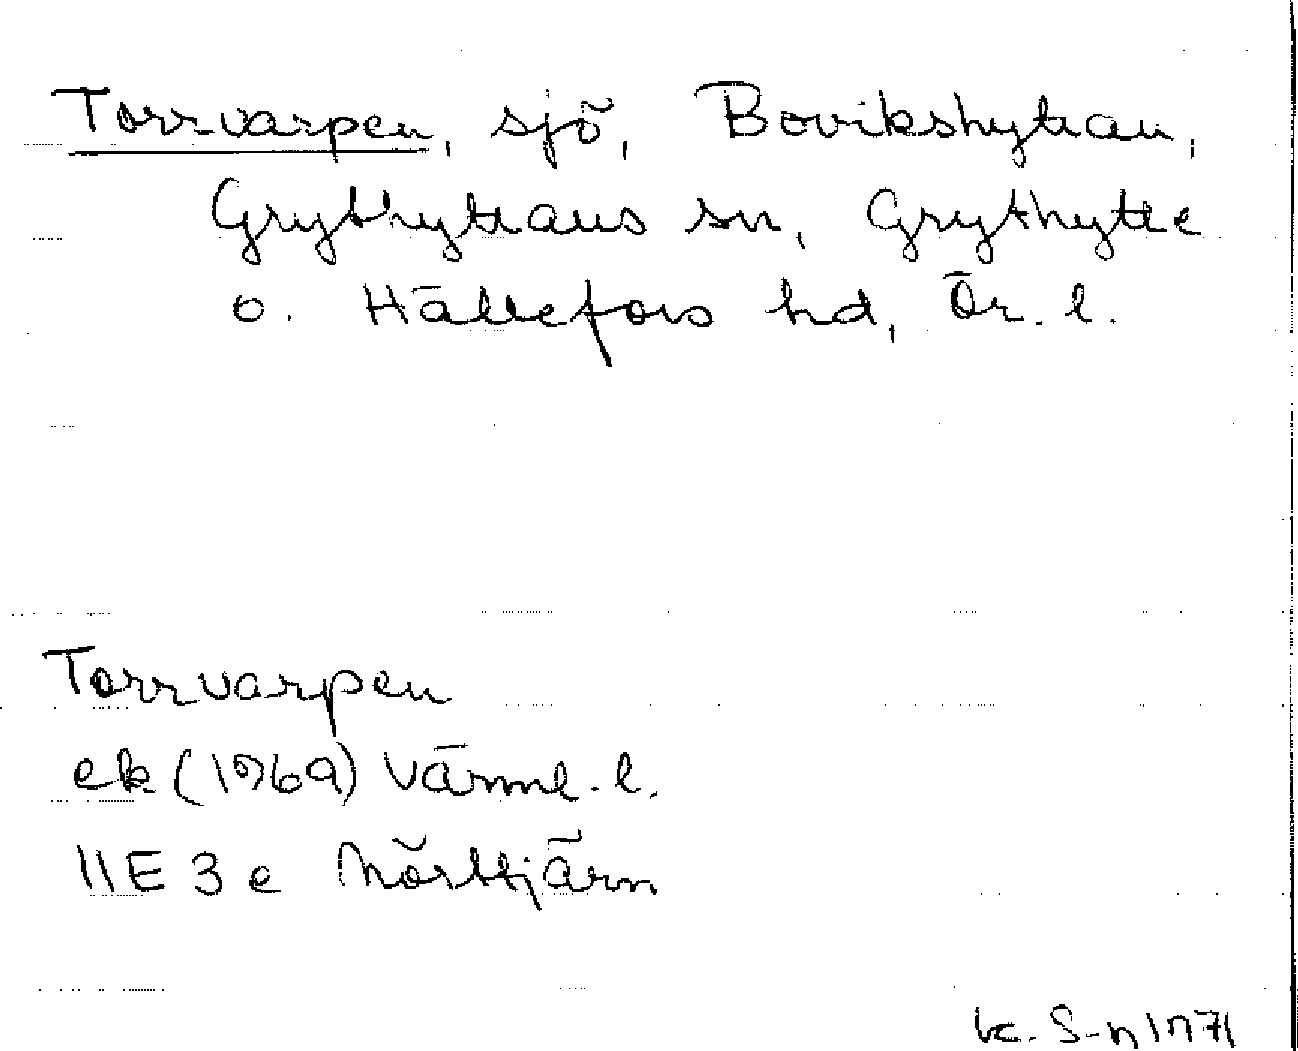 Torrvarpen, sjö, Bovikshyttan,
Grythyttans sn, Grythytte
o. Hällefors hd, Ör. l.
Torrvarpen
ek (1969) Värml. l.
11E 3e Mörttjärn
K. S-n 1971